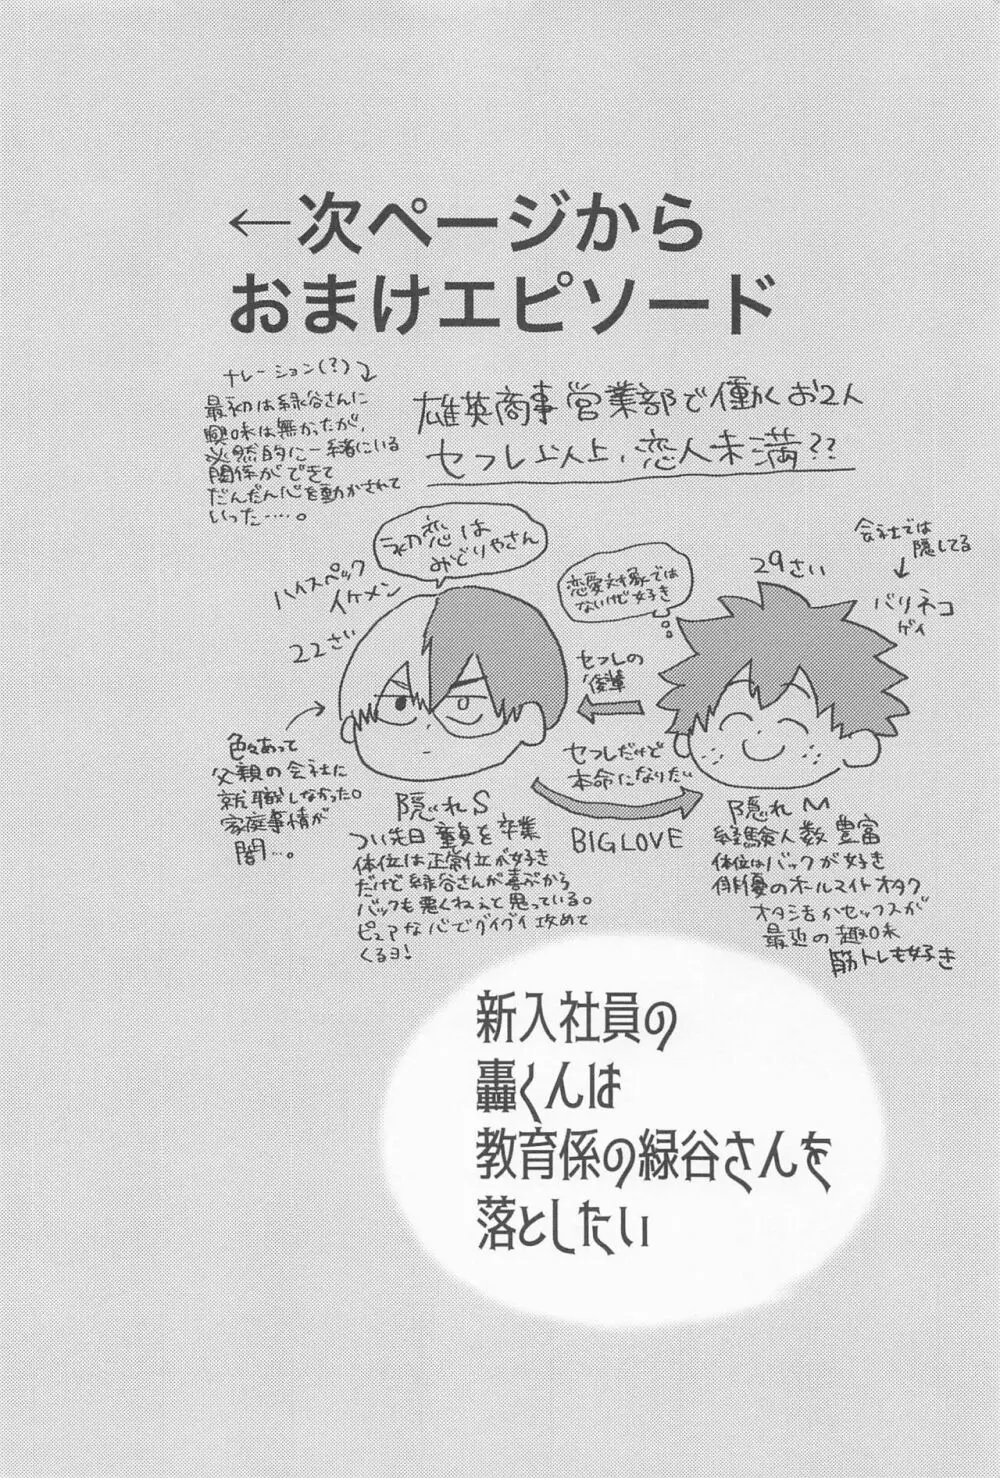 ←次ページから
おまけエピソード
ナレーション(?)
最初は緑谷さんに
興味は無かったが、
必然的に一緒にいる
関係ができて
だんだん心を動かされて
いった……。
雄英商事営業部で働くお2人
セフレ以上、恋人未満??
初恋は
みどりやさん
ハイスペック
イケメン
22さい
色々あって
父親の会社に
就職しなかった。
家庭事情が
闇…。
恋愛対象では
ないけど好き
29さい
会社では
隠してる
バリネコ
ゲイ
セフレの
後輩
セフレだけど
本命になりたい
BIG LOVE
隠れS
つい先日童貞を卒業
体位は正常位が好き
だけど緑谷さんが喜ぶから
バックも悪くねぇと思っている。
ピュアな心でグイグイ攻めて
くるヨ!
隠れM
経験人数豊富
体位はバックが好き
俳優のオールマイトオタク
オタ活かセックスが
最近の趣味
筋トレも好き
新入社員の
轟くんは
教育係の緑谷さんを
落としたい